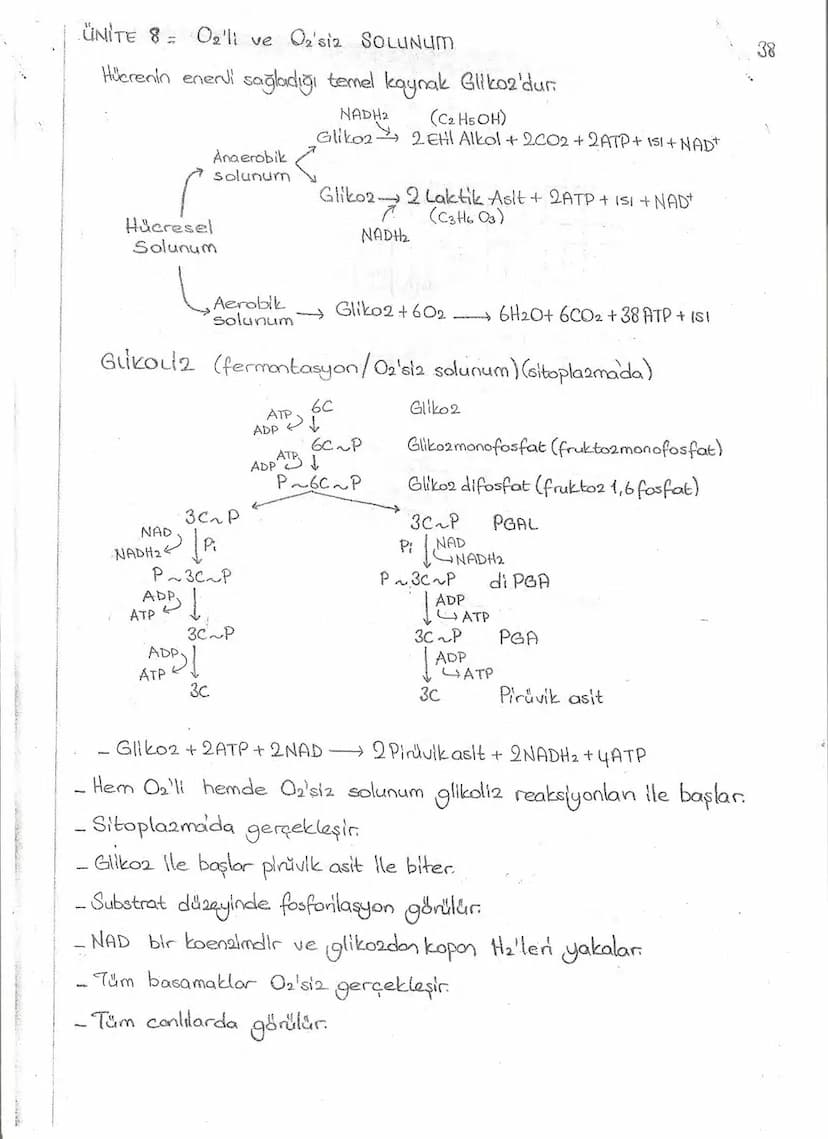 38
ÜNİTE 8 = O₂'li ve O₂'siz SOLUNUM
Hücrenin enerji sağladığı temel kaynak Glikoz'dur.
NADH₂ (C₂H₅OH)
Glikoz → 2 Etil Alkol + 2CO₂ + 2ATP + ISI + NAD⁺
Anaerobik
solunum
Glikoz → 2 Laktik Asit + 2ATP + ISI + NAD⁺
(C₃H₆O₃)
NADH₂
Hücresel
Solunum
Aerobik
solunum → Glikoz + 6O₂ → 6H₂O + 6CO₂ + 38 ATP + ISI
GLİKOLİZ (fermontasyon/O₂'siz solunum) (sitoplazma'da)
ATP 6C Glikoz
ADP
6C~P Glikozmonofosfat (fruktozmonofosfat)
ATP
ADP
P~6C~P Glikoz difosfat (fruktoz 1,6 fosfat)
3C~P 3C~P PGAL
NAD Pi NADH₂ Pi NAD NADH₂
P~3C~P P~3C~P di PGA
ADP ATP ADP ATP
3C~P 3C~P PGA
ADP ATP ADP ATP
3C 3C Pirüvik asit
- Glikoz + 2ATP + 2NAD → 2Pirüvik asit + 2NADH₂ + 4ATP
- Hem O₂'li hemde O₂'siz solunum glikoliz reaksiyonları ile başlar.
- Sitoplazma'da gerçekleşir.
- Glikoz ile başlar pirüvik asit ile biter.
- Substrat düzeyinde fosforilasyon görülür.
- NAD bir koenzimdir ve glikozdan kopan H₂'leri yakalar.
- Tüm basamaklar O₂'siz gerçekleşir.
- Tüm canlılarda görülür.